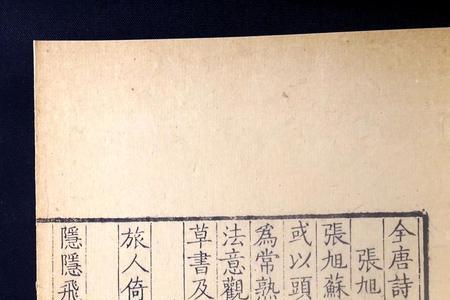 全唐詩
張旭
張旭蘇
或以頭
為常熟
法意觀
草書及
旅人倚
隱隱飛